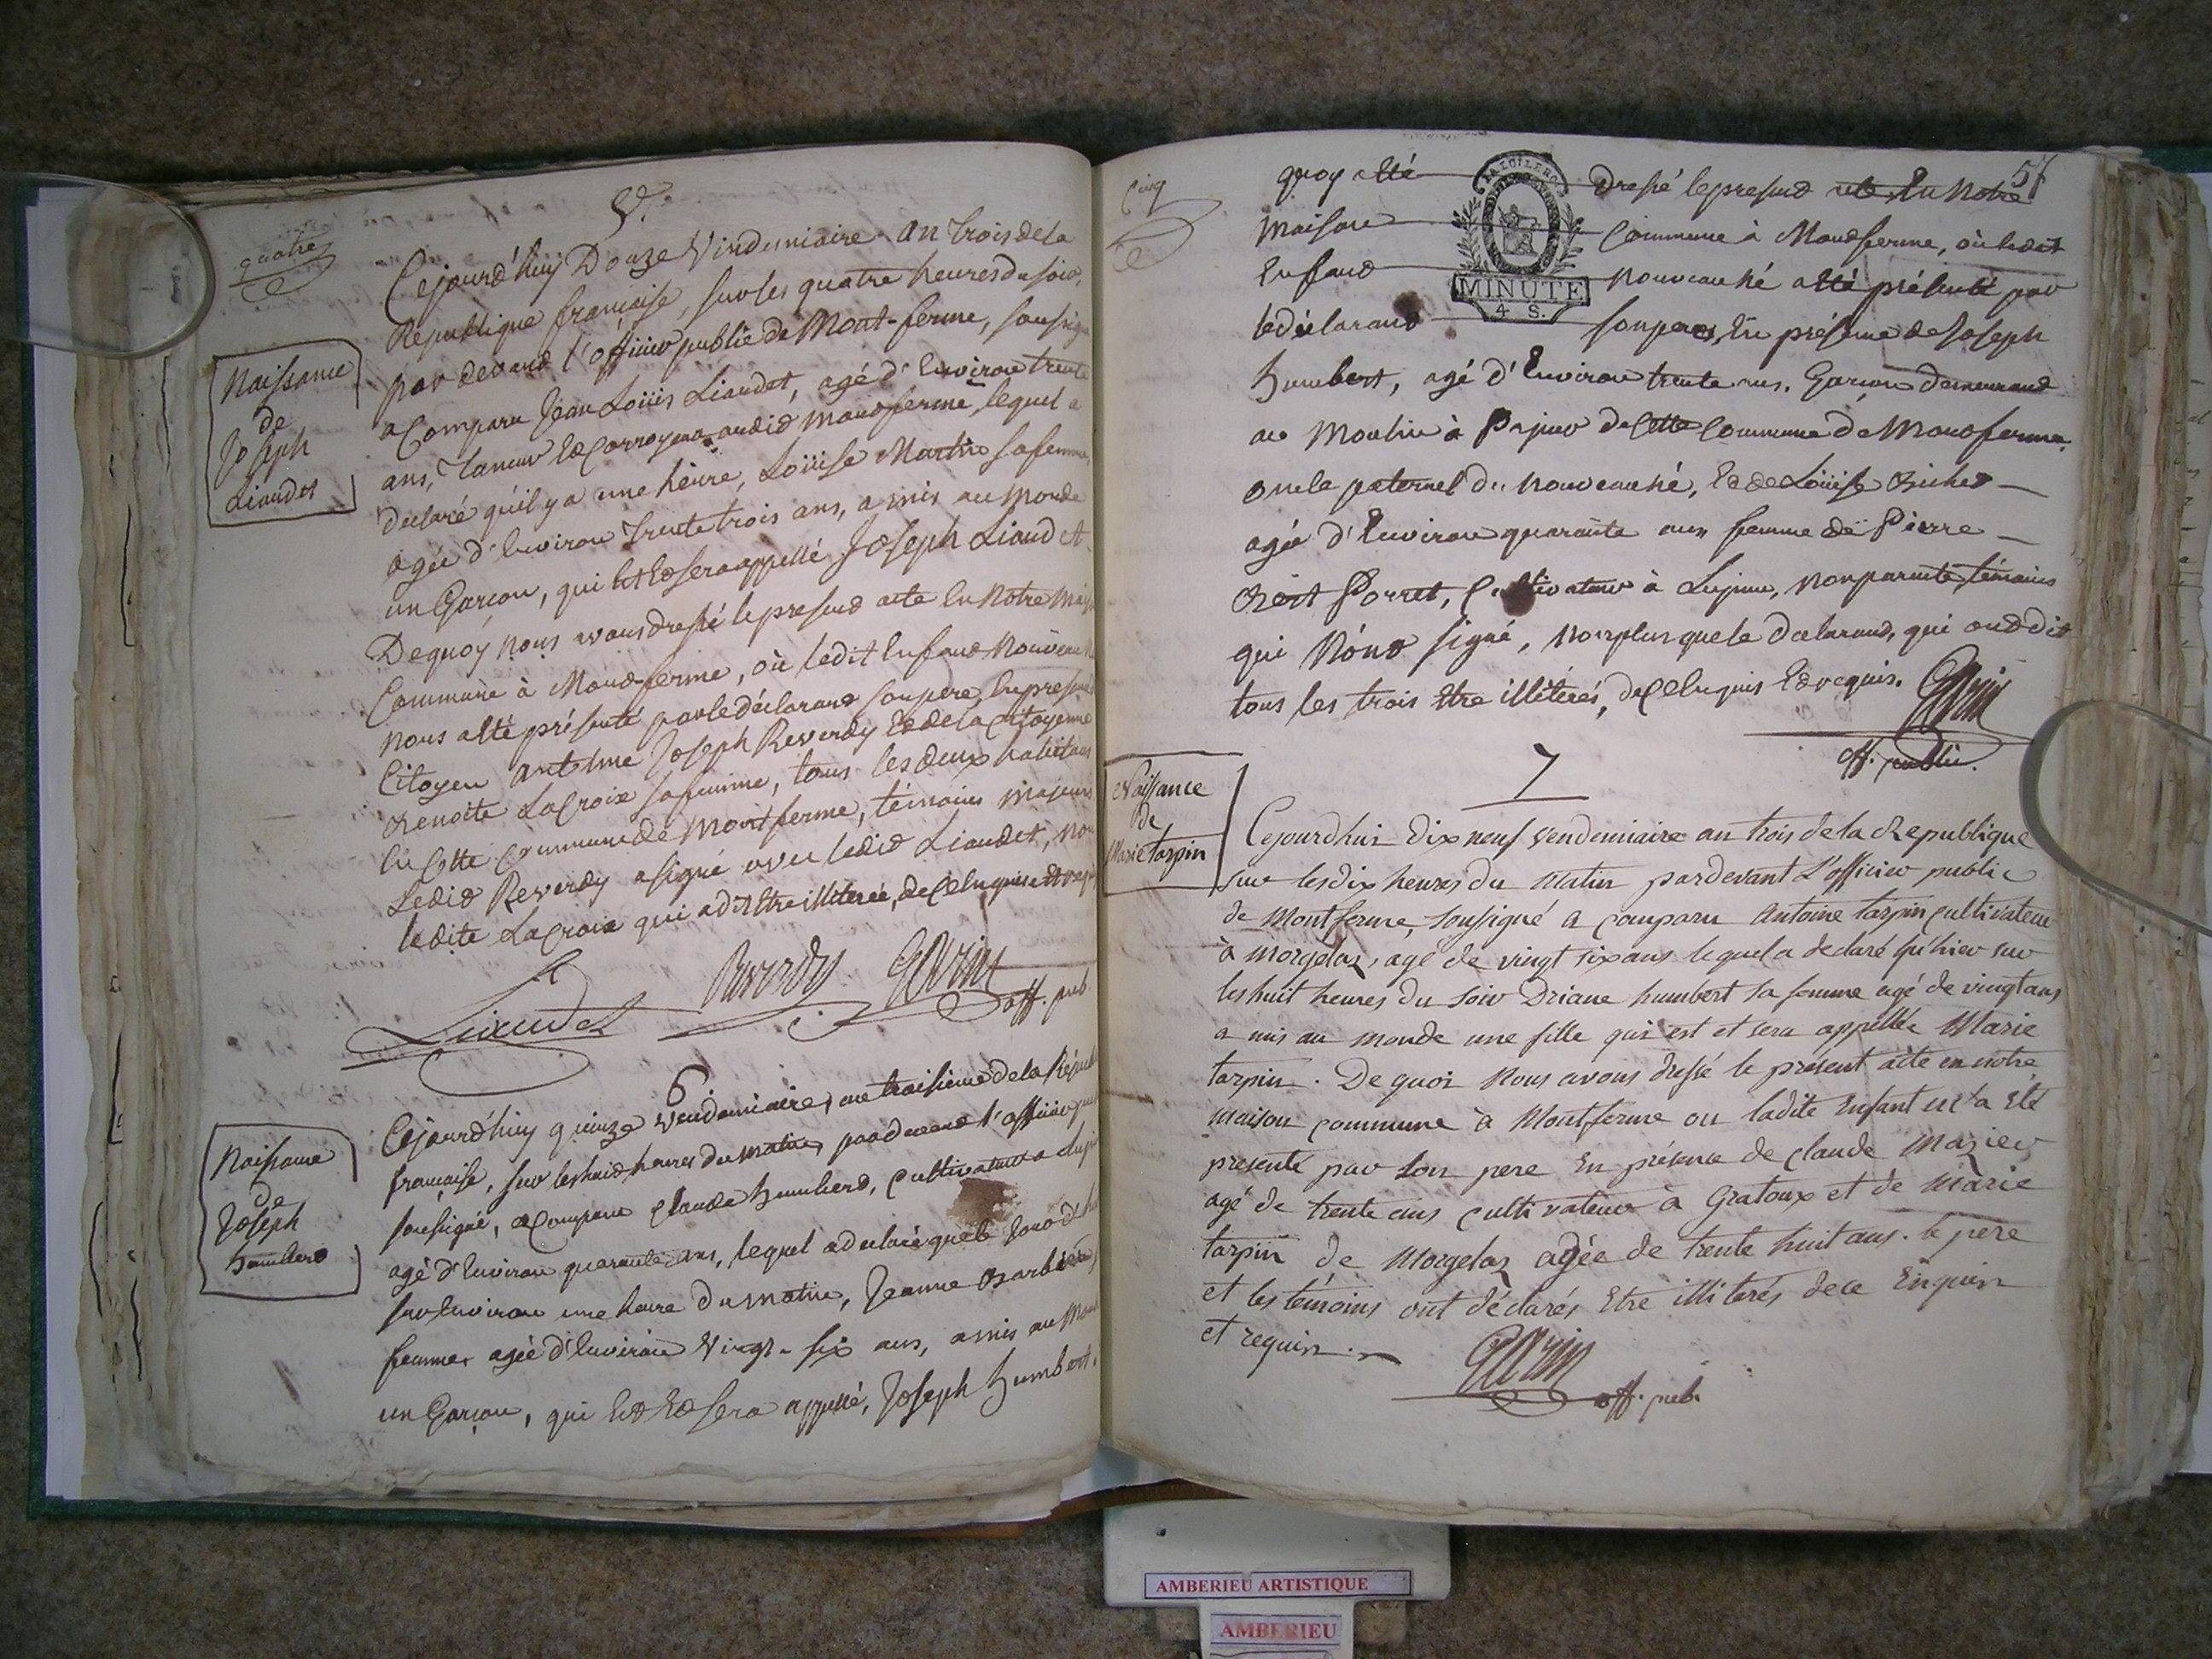 quatre
5e.
Cejourd'huy Douze Vindemiaire an trois de la
Republique française, sur les quatre heures du soir,
par devand l'officier public de Mont-ferme, soussigné
a Comparu Jean Loüis Liaudet, agé d'Environ trente
ans, Taneur Ed Corroyeur audid Mondferme, lequel a
declaré qu'il y a une heure, Loüise Martin sa femme,
agée d'Environ trente trois ans, a mis au Monde
un Garçon, qui Est Ed sera appellé Joseph Liaudet.
De quoy nous avons dressé le presend acte En Notre Mais
Commune à Mond-ferme, où ledit Enfand Nouveau
nous a Eté présenté par le déclarand son pere, En presen
Citoyen Antelme Joseph Reverdy Ed de la Citoyenne
Benoite Lacroix sa femme, tous les deux habitans
En Cette Commune de Montferme, témoins majeurs
Ledid Reverdy a signé avec ledid Liaudet, non
ladite Lacroix qui a dit Etre illiterée, de Ce Enquise et req
Liaudet Reverdy Gavin off. pub.
Naissance
de
Joseph
Liaudet
6
Cejourd'huy quinze Vendemiaire, an troisieme de la Répub
française, sur les huid heures du matin, pardevand l'officier pu
soussigné, a Comparu Claude humberd, Cultivateur a Lup
agé d'Environ quarante ans, lequel a declaré que le jour d'h
sur Environ une heure du matin, Jeanne Barbier
femme, agée d'Environ Vingt-six ans, a mis au Mon
un Garçon, qui Est Ed sera appellé, Joseph humbert.
Naissance
de
Joseph
humberd
Cinq
57
quoy a Eté dressé le presend acte En Notre
Maison Commune à Mondferme, où ledit
Enfand nouveau né a Eté présenté par
le déclarand son pere, En présence de Joseph
humbert, agé d'Environ trente ans, Garçon demeurand
au Moulin à Papier de Cette Commune de Mondferme,
oncle paternel du nouveau né, Ed de Loüise
agée d'Environ quarante ans femme de Pierre
Porret, Cultivateur à Lupieu, non parente témoins
qui N'ond signé, non plus que le declarand, qui ond dit
tous les trois Etre illiterés, de Ce Enquis Ed requis. Gavin
off. public.
MINUTE
4 S.
7
Naissance
de
Marie tarpin
Cejourdhui dix neuf Vendemiaire an trois de la Republique
sur les dix heures du Matin pardevant L'officier public
de Montferme, soussigné a comparu Antoine tarpin cultivateur
à Morgelaz, agé de vingt six ans lequel a declaré qu'hier sur
les huit heures du soir Driane humbert sa femme agé de vingt ans
a mis au monde une fille qui est et sera appellée Marie
tarpin. De quoi Nous avons dressé le present acte en notre
Maison commune à Montferme ou ladite Enfant m'a Eté
presenté par son pere En présence de claude Mazier
agé de trente ans cultivateur à Gratoux et de Marie
tarpin de Morgelaz agée de trente huit ans. le pere
et les temoins ont déclarés Etre illiterés de ce Enquin
et requin.
Gavin
off. pub.
AMBERIEU ARTISTIQUE
AMBERIEU